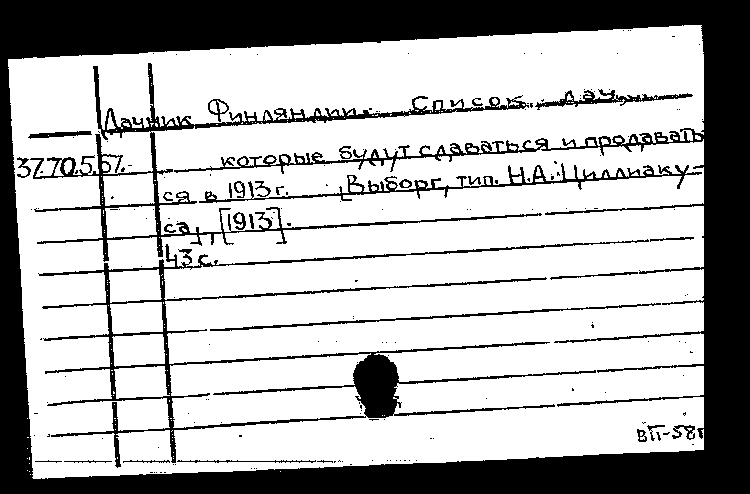 Дачник Финляндии. Список дач,
37.70.5.57. которые будут сдаваться и продавать
ся в 1913 г. [Выборг, тип. Н.А. Циллиаку=
са], [1913].
43 с.